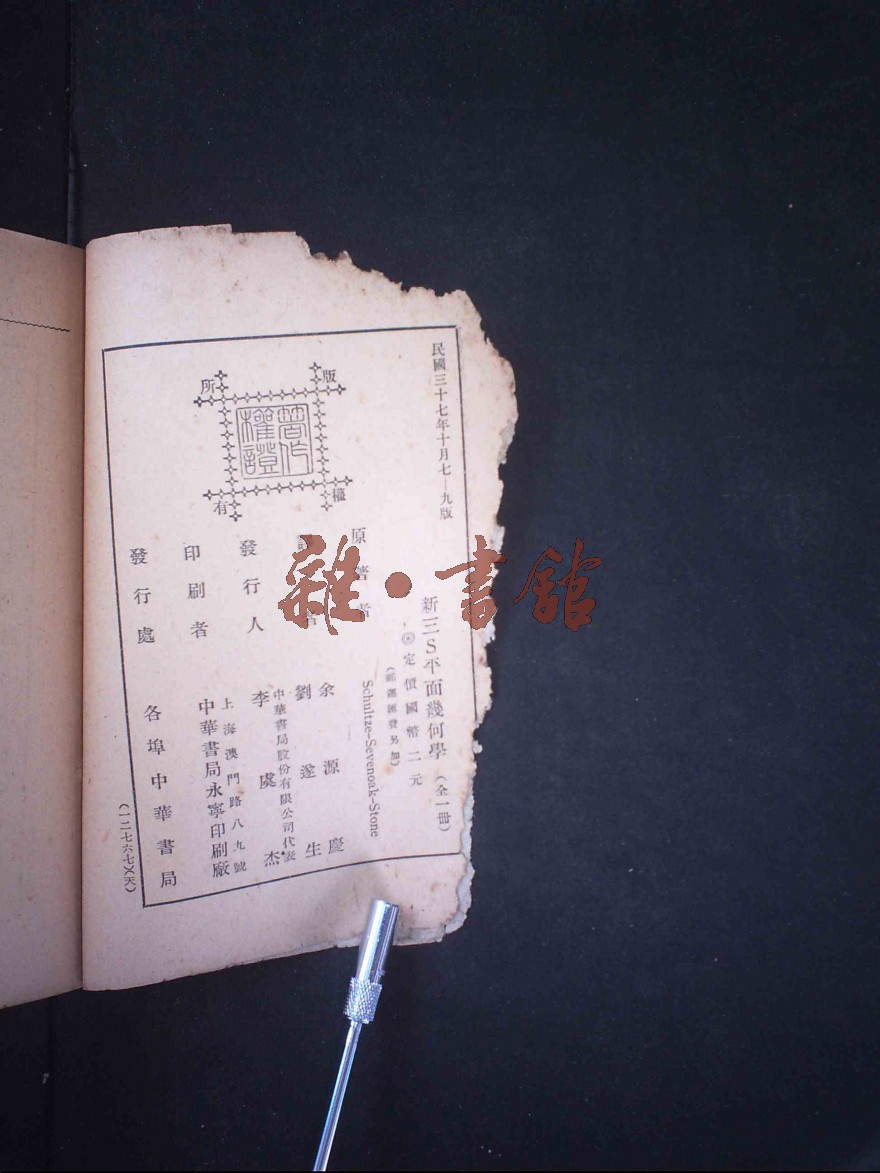 民國三十七年十月七—九版
新三S平面幾何學（全一冊）
定價國幣二元
（郵運匯費另加）
原著者 Schultze-Sevenoak-Stone
者 余源慶
劉遂生
發行人 中華書局股份有限公司代表
李虞杰
印刷者 上海澳門路八九號
中華書局永寧印刷廠
發行處 各埠中華書局
（一二七六七）（天）
版權所有
著作權證
雜·書館